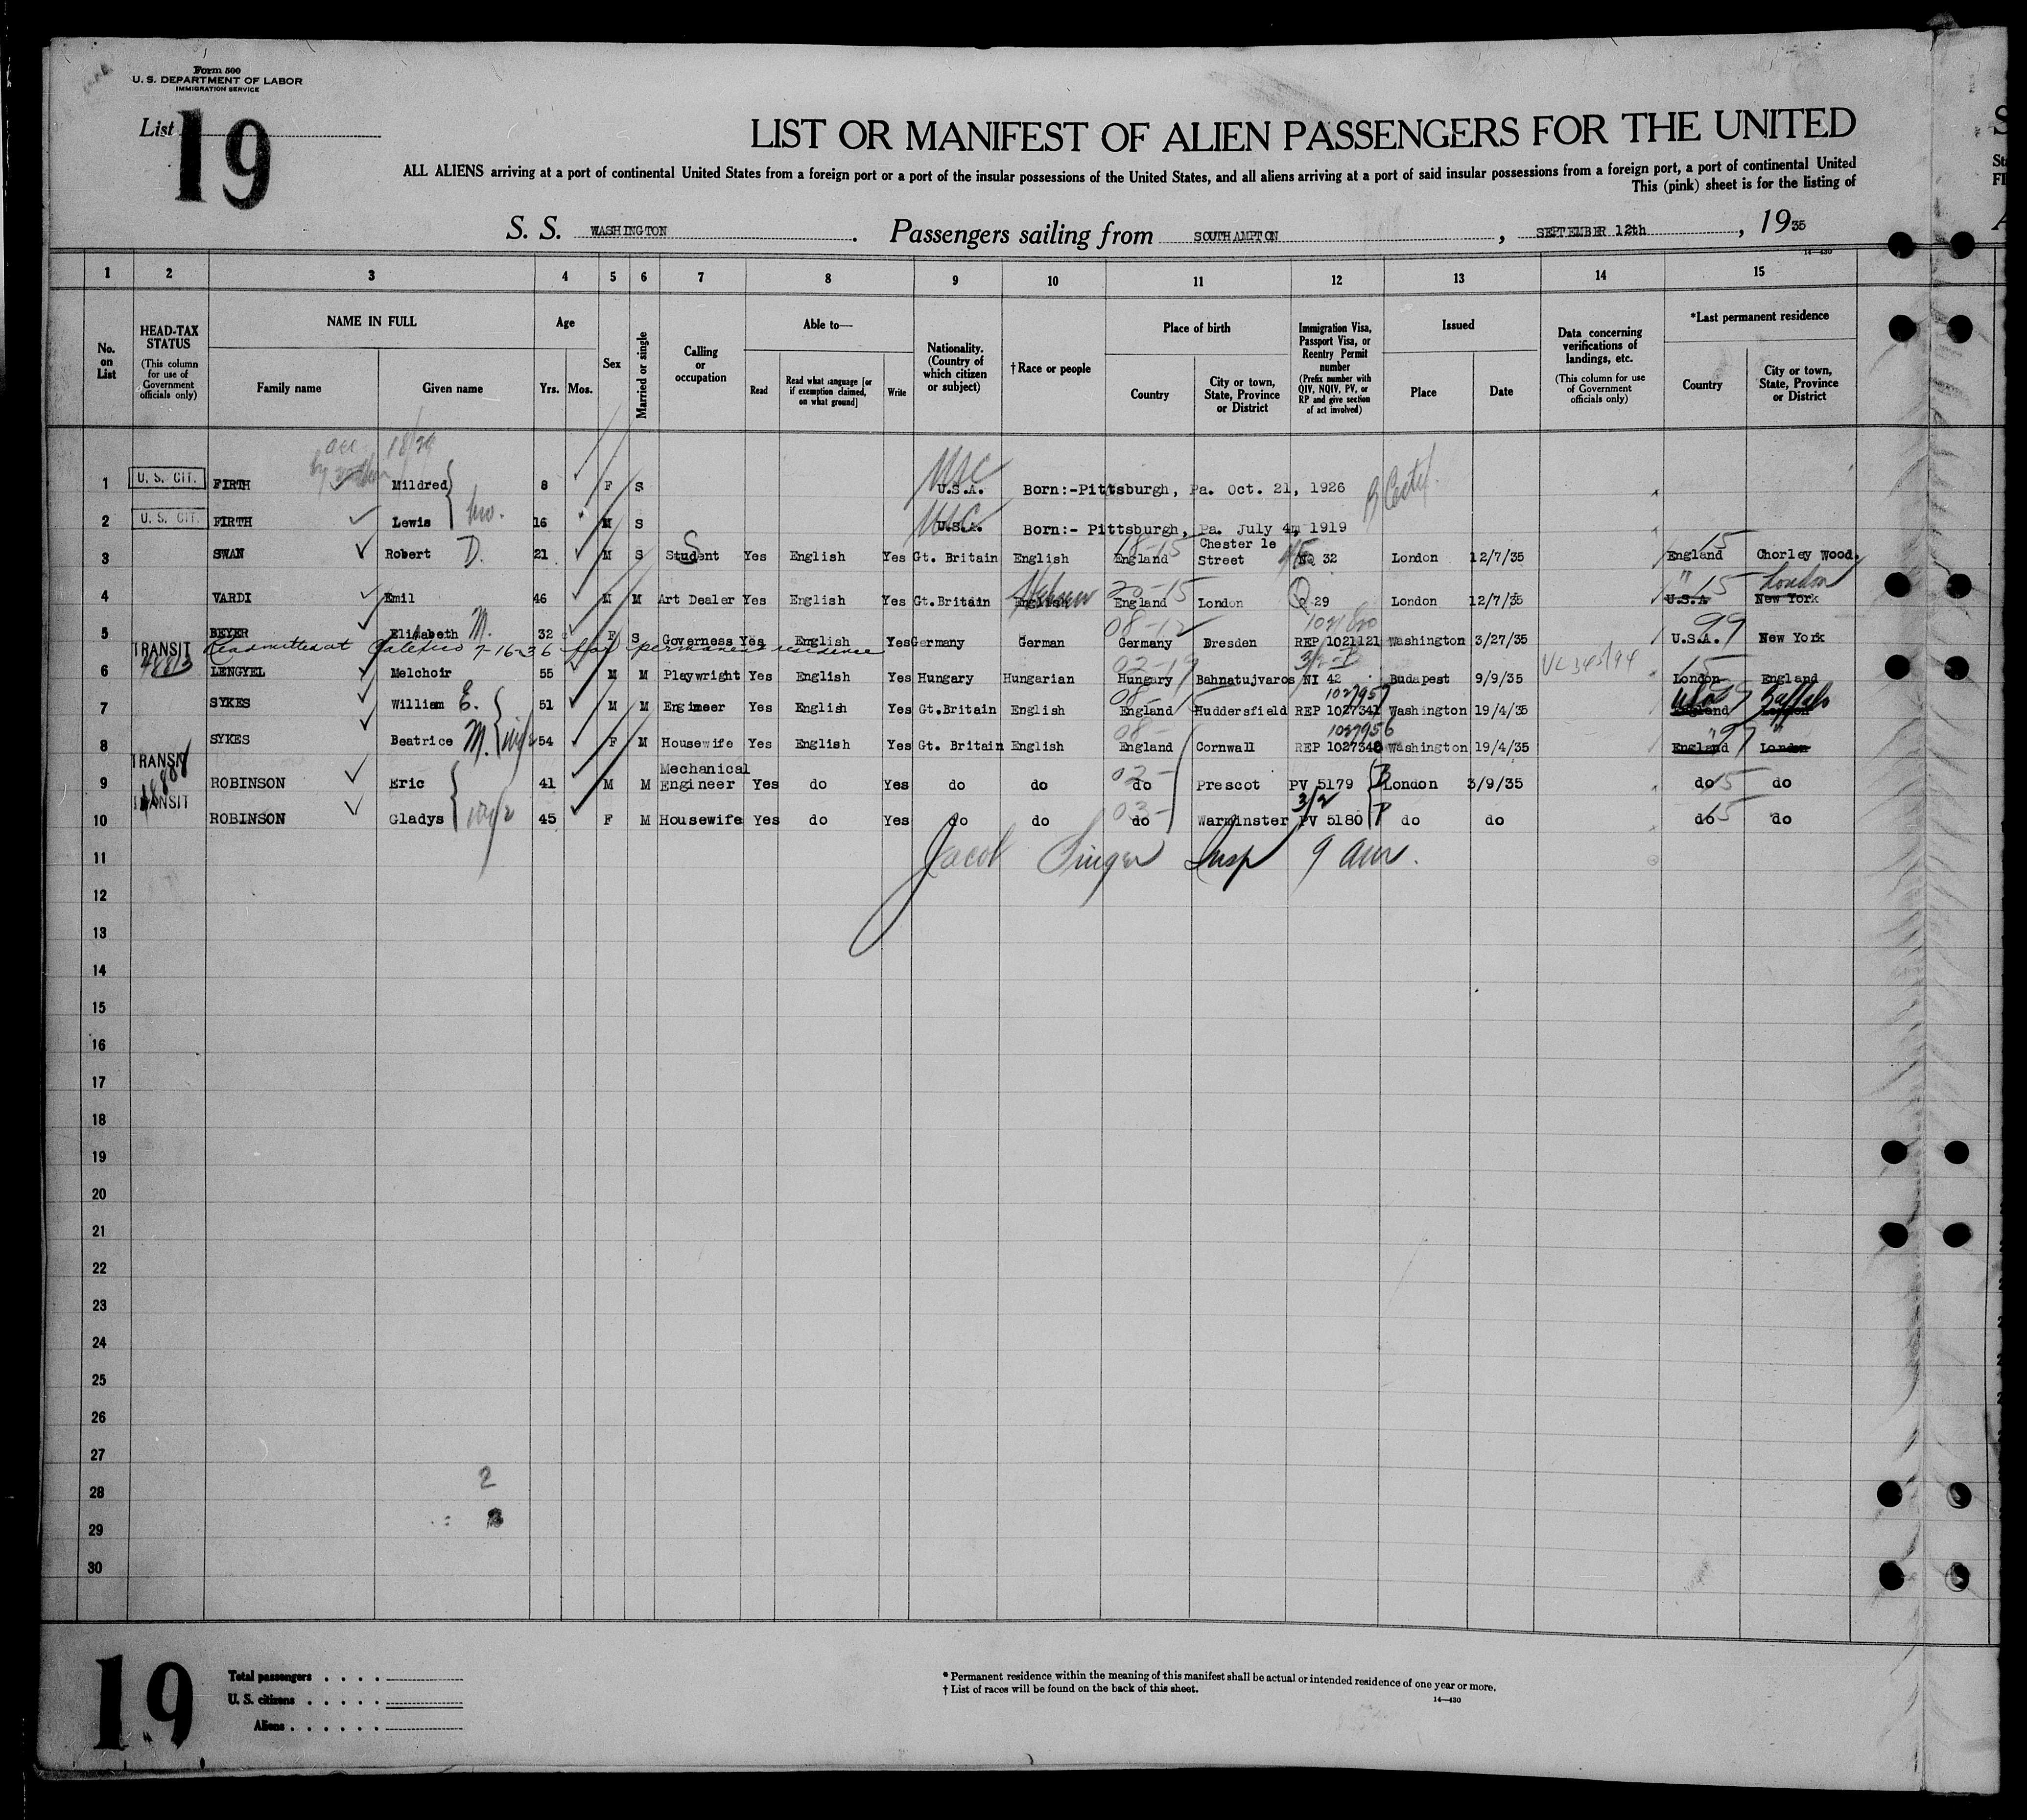 Form 500
U. S. DEPARTMENT OF LABOR
IMMIGRATION SERVICE
List 19
LIST OR MANIFEST OF ALIEN PASSENGERS FOR THE UNITED
ALL ALIENS arriving at a port of continental United States from a foreign port or a port of the insular possessions of the United States, and all aliens arriving at a port of said insular possessions from a foreign port, a port of continental United
This (pink) sheet is for the listing of
S. S. WASHINGTON. Passengers sailing from SOUTHAMPTON, SEPTEMBER 12th, 1935
14—430
1 2 3 4 5 6 7 8 9 10 11 12 13 14 15
No. on List
HEAD-TAX STATUS
(This column for use of Government officials only)
NAME IN FULL
Family name Given name
Age
Yrs. Mos.
Sex
Married or single
Calling or occupation
Able to—
Read
Read what language [or if exemption claimed, on what ground]
Write
Nationality. (Country of which citizen or subject)
†Race or people
Place of birth
Country
City or town, State, Province or District
Immigration Visa, Passport Visa, or Reentry Permit number
(Prefix number with QIV, NQIV, PV, or RP and give section of act involved)
Issued
Place Date
Data concerning verifications of landings, etc.
(This column for use of Government officials only)
*Last permanent residence
Country
City or town, State, Province or District
18/29
USC
1 U. S. CIT. FIRTH Mildred 8 F S U.S.A. Born:-Pittsburgh, Pa. Oct. 21, 1926
2 U. S. CIT. FIRTH Lewis 16 M S U.S.A. Born:- Pittsburgh, Pa. July 4, 1919
3 SWAN Robert D. 21 M S Student Yes English Yes Gt. Britain English England Chester le Street No 32 London 12/7/35 England Chorley Wood.
4 VARDI Emil 46 M M Art Dealer Yes English Yes Gt.Britain English Hebrew England London Q 29 London 12/7/35 U.S.A " New York London
5 BEYER Elizabeth M. 32 F S Governess Yes English Yes Germany German Germany Dresden REP 1021121 Washington 3/27/35 U.S.A. New York
TRANSIT Readmitted at Calexico 7-16-36 for permanent residence
6 LENGYEL Melchoir 55 M M Playwright Yes English Yes Hungary Hungarian Hungary Bahnatujvaros NI 42 Budapest 9/9/35 London England
7 SYKES William E. 51 M M Engineer Yes English Yes Gt.Britain English England Huddersfield REP 1027341 1027957 Washington 19/4/35 England London Buffalo
8 SYKES Beatrice M. wife 54 F M Housewife Yes English Yes Gt. Britain English England Cornwall REP 1027340 1027956 Washington 19/4/35 England London
TRANSIT
9 ROBINSON Eric 41 M M Mechanical Engineer Yes do Yes do do do Prescot PV 5179 London 3/9/35 do do
TRANSIT
10 ROBINSON Gladys wife 45 F M Housewife Yes do Yes do do do Warminster PV 5180 do do do do
11 Jacob Singer Insp 9 am.
12
13
14
15
16
17
18
19
20
21
22
23
24
25
26
27
28
29
30
2
19
Total passengers
U. S. citizens
Aliens
* Permanent residence within the meaning of this manifest shall be actual or intended residence of one year or more.
† List of races will be found on the back of this sheet.
14—430